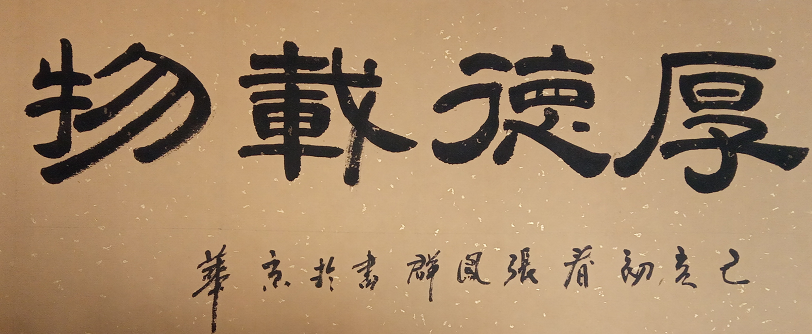 厚德載物
己亥初春張鳳群書於京華